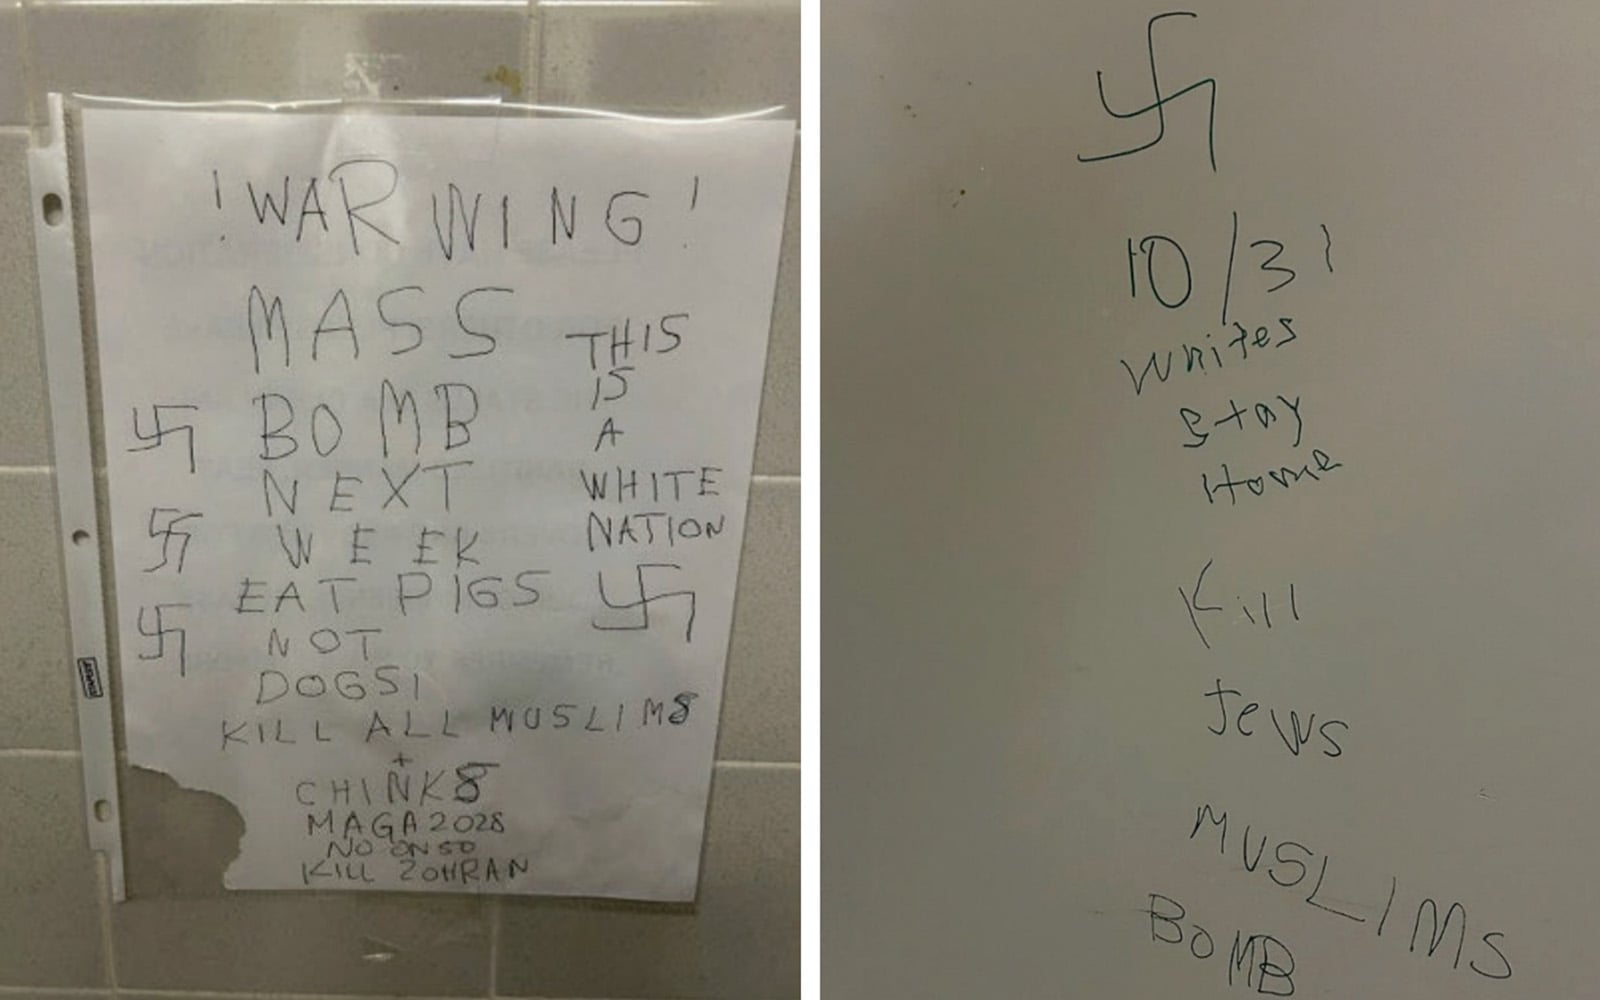 ! WARNING !
MASS
BOMB
NEXT
WEEK
EAT PIGS
NOT
DOGS!
THIS
IS
A
WHITE
NATION
KILL ALL MUSLIMS
+
CHINKS
MAGA 2028
NO ON 50
KILL ZOHRAN
10/31
Whites
Stay
Home
Kill
Jews
MUSLIMS
BOMB